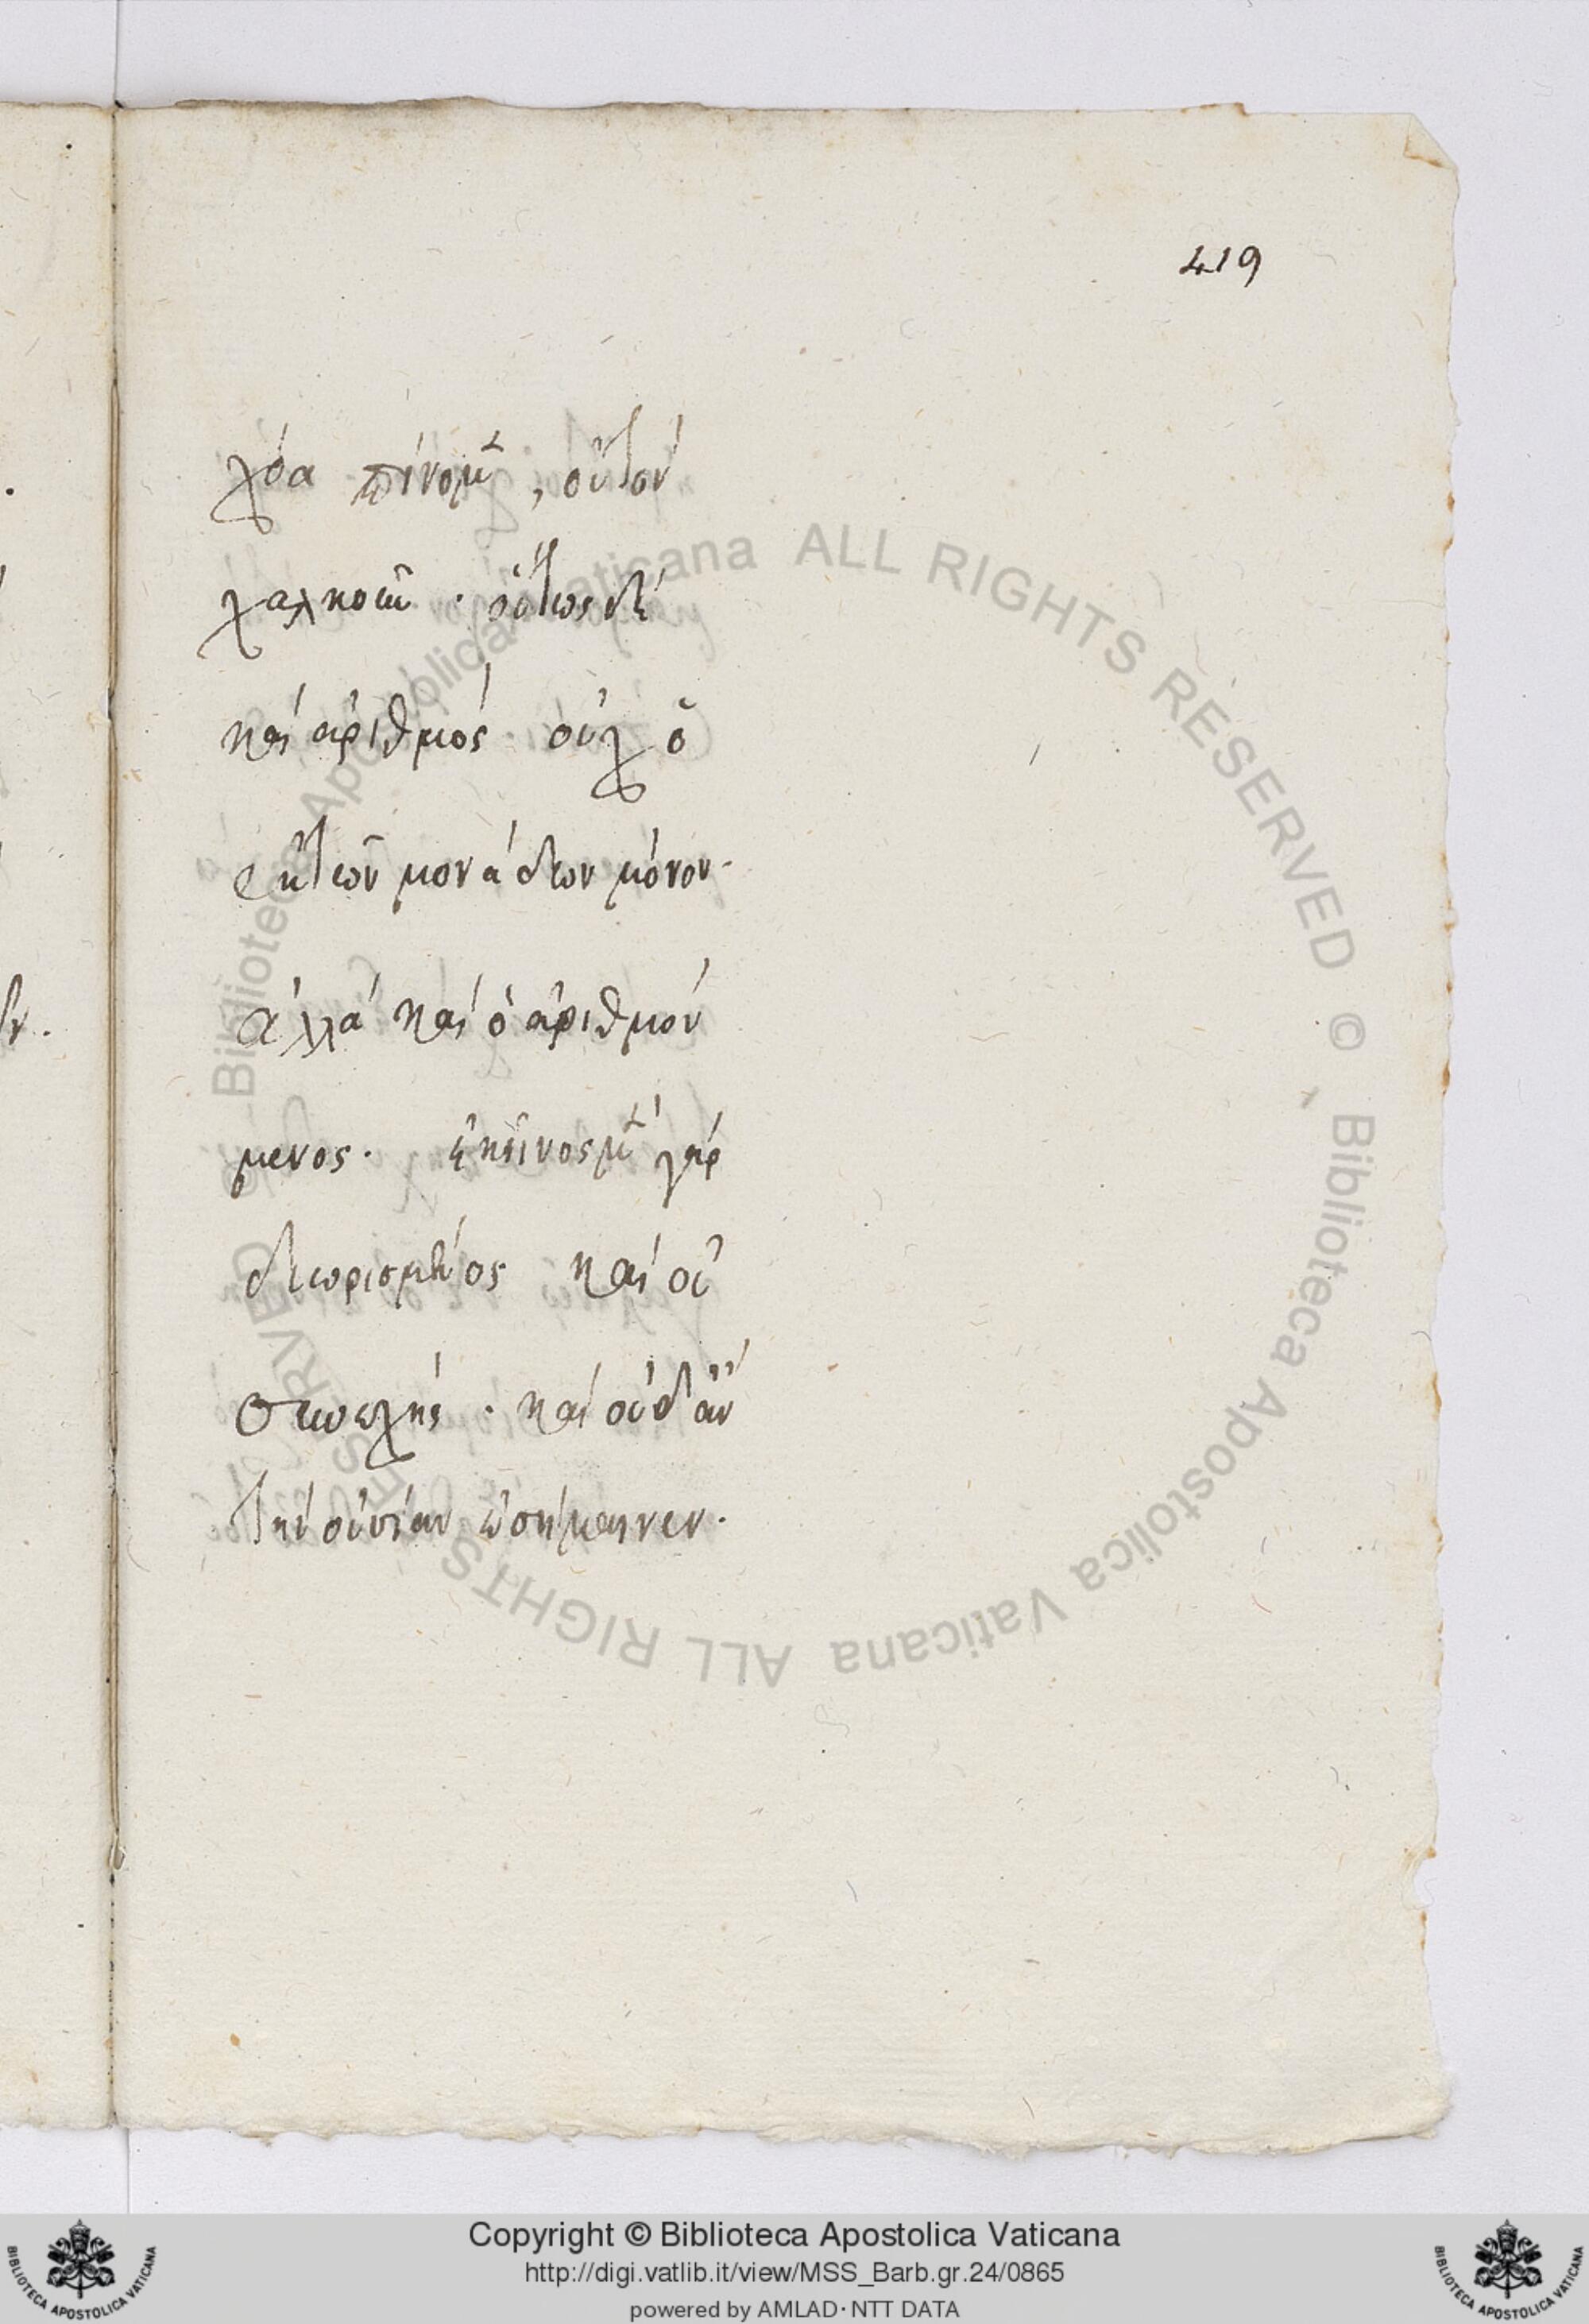 419
χόα πίνομεν, οὐ τὸν
χαλκοῦν. οὕτως δὲ
καὶ ἀριθμός. οὐχ ὁ
ἐκ τῶν μονάδων μόνον.
ἀλλὰ καὶ ὁ ἀριθμού
μενος. ἐκεῖνος μὲν γὰρ
διωρισμένος καὶ οὐ
συνεχής. καὶ οὐδ' ἂν
τὴν οὐσίαν ἐσήμαινεν.
Biblioteca Apostolica Vaticana ALL RIGHTS RESERVED © Biblioteca Apostolica Vaticana ALL RIGHTS RESERVED ©
Copyright © Biblioteca Apostolica Vaticana
http://digi.vatlib.it/view/MSS_Barb.gr.24/0865
powered by AMLAD · NTT DATA
BIBLIOTECA APOSTOLICA VATICANA
BIBLIOTECA APOSTOLICA VATICANA